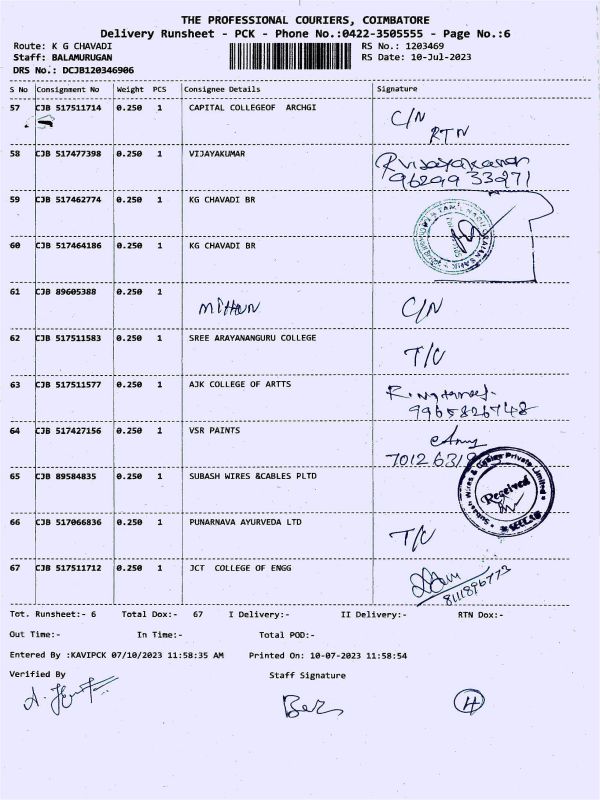 THE PROFESSIONAL COURIERS, COIMBATORE
Delivery Runsheet - PCK - Phone No.:0422-3505555 - Page No.:6
Route: K G CHAVADI RS No.: 1203469
Staff: BALAMURUGAN RS Date: 10-Jul-2023
DRS No.: DCJB120346906
S No Consignment No Weight PCS Consignee Details Signature
57 CJB 517511714 0.250 1 CAPITAL COLLEGEOF ARCHGI C/N
RTN
58 CJB 517477398 0.250 1 VIJAYAKUMAR
96299 33971
59 CJB 517462774 0.250 1 KG CHAVADI BR
60 CJB 517464186 0.250 1 KG CHAVADI BR
61 CJB 89605388 0.250 1
MITHUN C/N
62 CJB 517511583 0.250 1 SREE ARAYANANGURU COLLEGE
T/C
63 CJB 517511577 0.250 1 AJK COLLEGE OF ARTTS
9965826748
64 CJB 517427156 0.250 1 VSR PAINTS
65 CJB 89584835 0.250 1 SUBASH WIRES &CABLES PLTD
Subash Wires & Cables Private Limited
Received
66 CJB 517066836 0.250 1 PUNARNAVA AYURVEDA LTD
T/C
67 CJB 517511712 0.250 1 JCT COLLEGE OF ENGG
Tot. Runsheet:- 6 Total Dox:- 67 I Delivery:- II Delivery:- RTN Dox:-
Out Time:- In Time:- Total POD:-
Entered By :KAVIPCK 07/10/2023 11:58:35 AM Printed On: 10-07-2023 11:58:54
Verified By Staff Signature